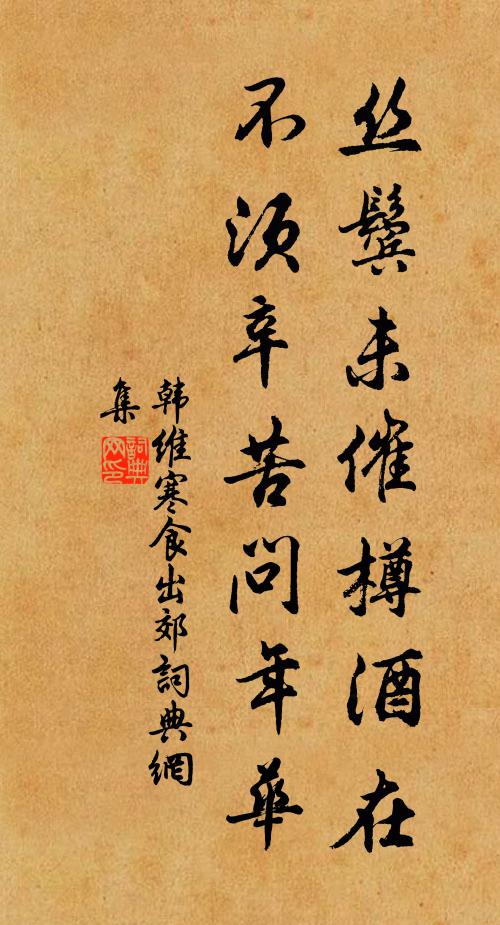 丝鬓未催樽酒在
不须辛苦问年华
韩维寒食出郊詞典網
集
詞典网印